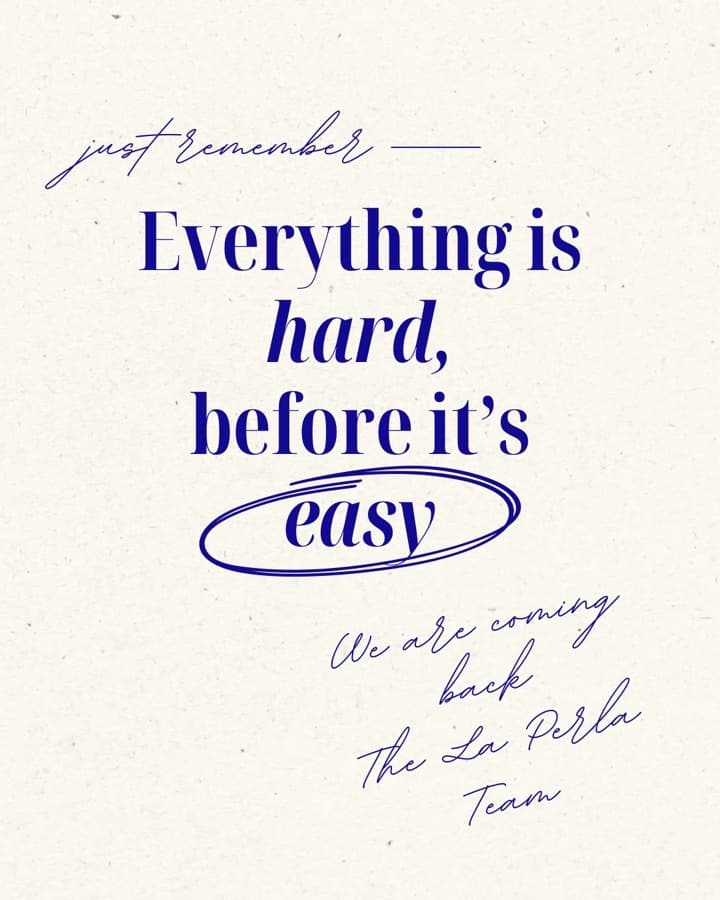 just remember —
Everything is
hard,
before it’s
easy
We are coming
back
The La Perla
Team